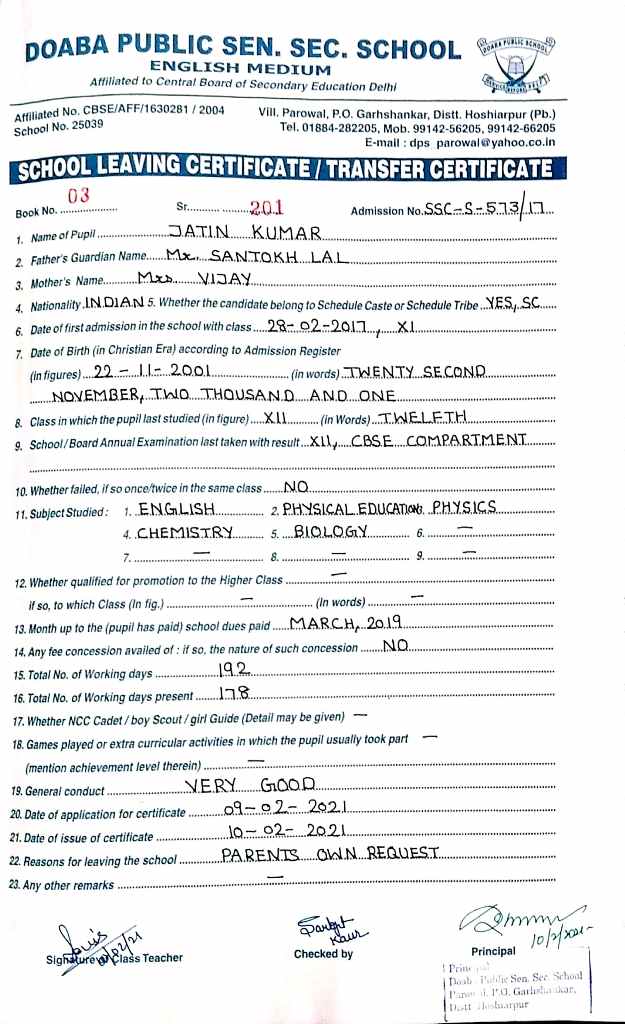 DOABA PUBLIC SEN. SEC. SCHOOL
ENGLISH MEDIUM
Affiliated to Central Board of Secondary Education Delhi
DOABA PUBLIC SCHOOL
Affiliated No. CBSE/AFF/1630281 / 2004
School No. 25039
Vill. Parowal, P.O. Garhshankar, Distt. Hoshiarpur (Pb.)
Tel. 01884-282205, Mob. 99142-56205, 99142-66205
E-mail : dps parowal@yahoo.co.in
SCHOOL LEAVING CERTIFICATE / TRANSFER CERTIFICATE
Book No. 03 Sr. 201 Admission No. SSC-S-573/17
1. Name of Pupil JATIN KUMAR
2. Father's Guardian Name Mr. SANTOKH LAL
3. Mother's Name Mrs VIJAY
4. Nationality INDIAN 5. Whether the candidate belong to Schedule Caste or Schedule Tribe YES, SC
6. Date of first admission in the school with class 28-02-2017, XI
7. Date of Birth (in Christian Era) according to Admission Register
(in figures) 22-11-2001 (in words) TWENTY SECOND
NOVEMBER, TWO THOUSAND AND ONE
8. Class in which the pupil last studied (in figure) XII (in Words) TWELFTH
9. School/Board Annual Examination last taken with result XII, CBSE COMPARTMENT
10. Whether failed, if so once/twice in the same class NO
11. Subject Studied : 1. ENGLISH 2. PHYSICAL EDUCATION 3. PHYSICS
4. CHEMISTRY 5. BIOLOGY 6. —
7. — 8. — 9. —
12. Whether qualified for promotion to the Higher Class —
if so, to which Class (In fig.) — (In words) —
13. Month up to the (pupil has paid) school dues paid MARCH, 2019
14. Any fee concession availed of : if so, the nature of such concession NO
15. Total No. of Working days 192
16. Total No. of Working days present 178
17. Whether NCC Cadet / boy Scout / girl Guide (Detail may be given) —
18. Games played or extra curricular activities in which the pupil usually took part —
(mention achievement level therein) —
19. General conduct VERY GOOD
20. Date of application for certificate 09-02-2021
21. Date of issue of certificate 10-02-2021
22. Reasons for leaving the school PARENTS OWN REQUEST
23. Any other remarks —
Kaur
10/2/2021
Signature Class Teacher Checked by Principal
Principal
Doaba Public Sen. Sec. School
Parowal, P.O. Garhshankar,
Distt. Hoshiarpur